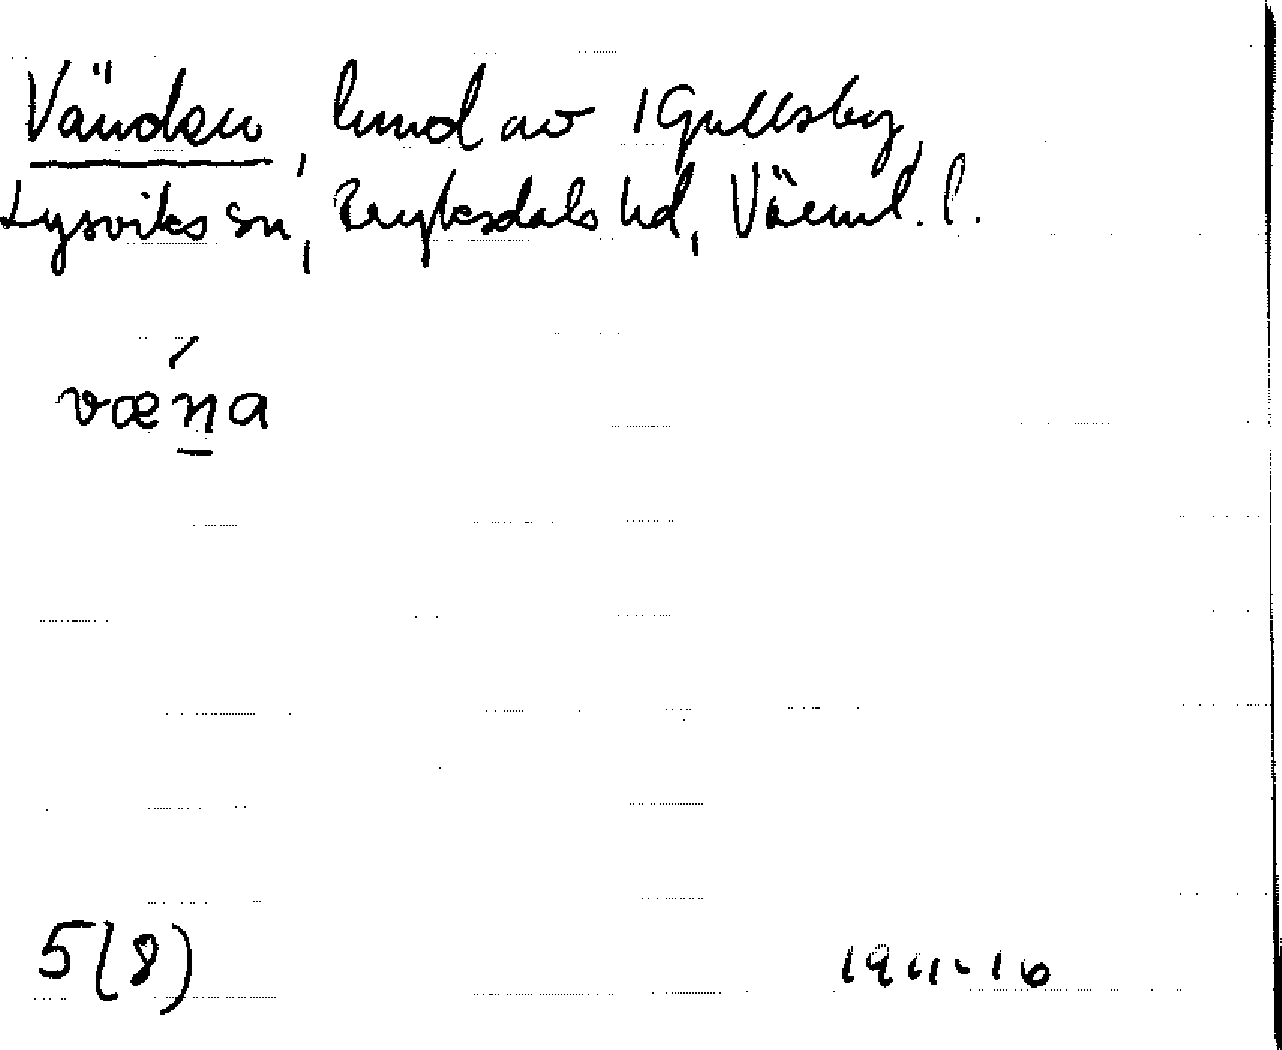 Vänden, lund av 1 Gullsby,
Lysviks sn, Fryksdals hd, Värml. l.
væṉ́a
5(8)
1911-16